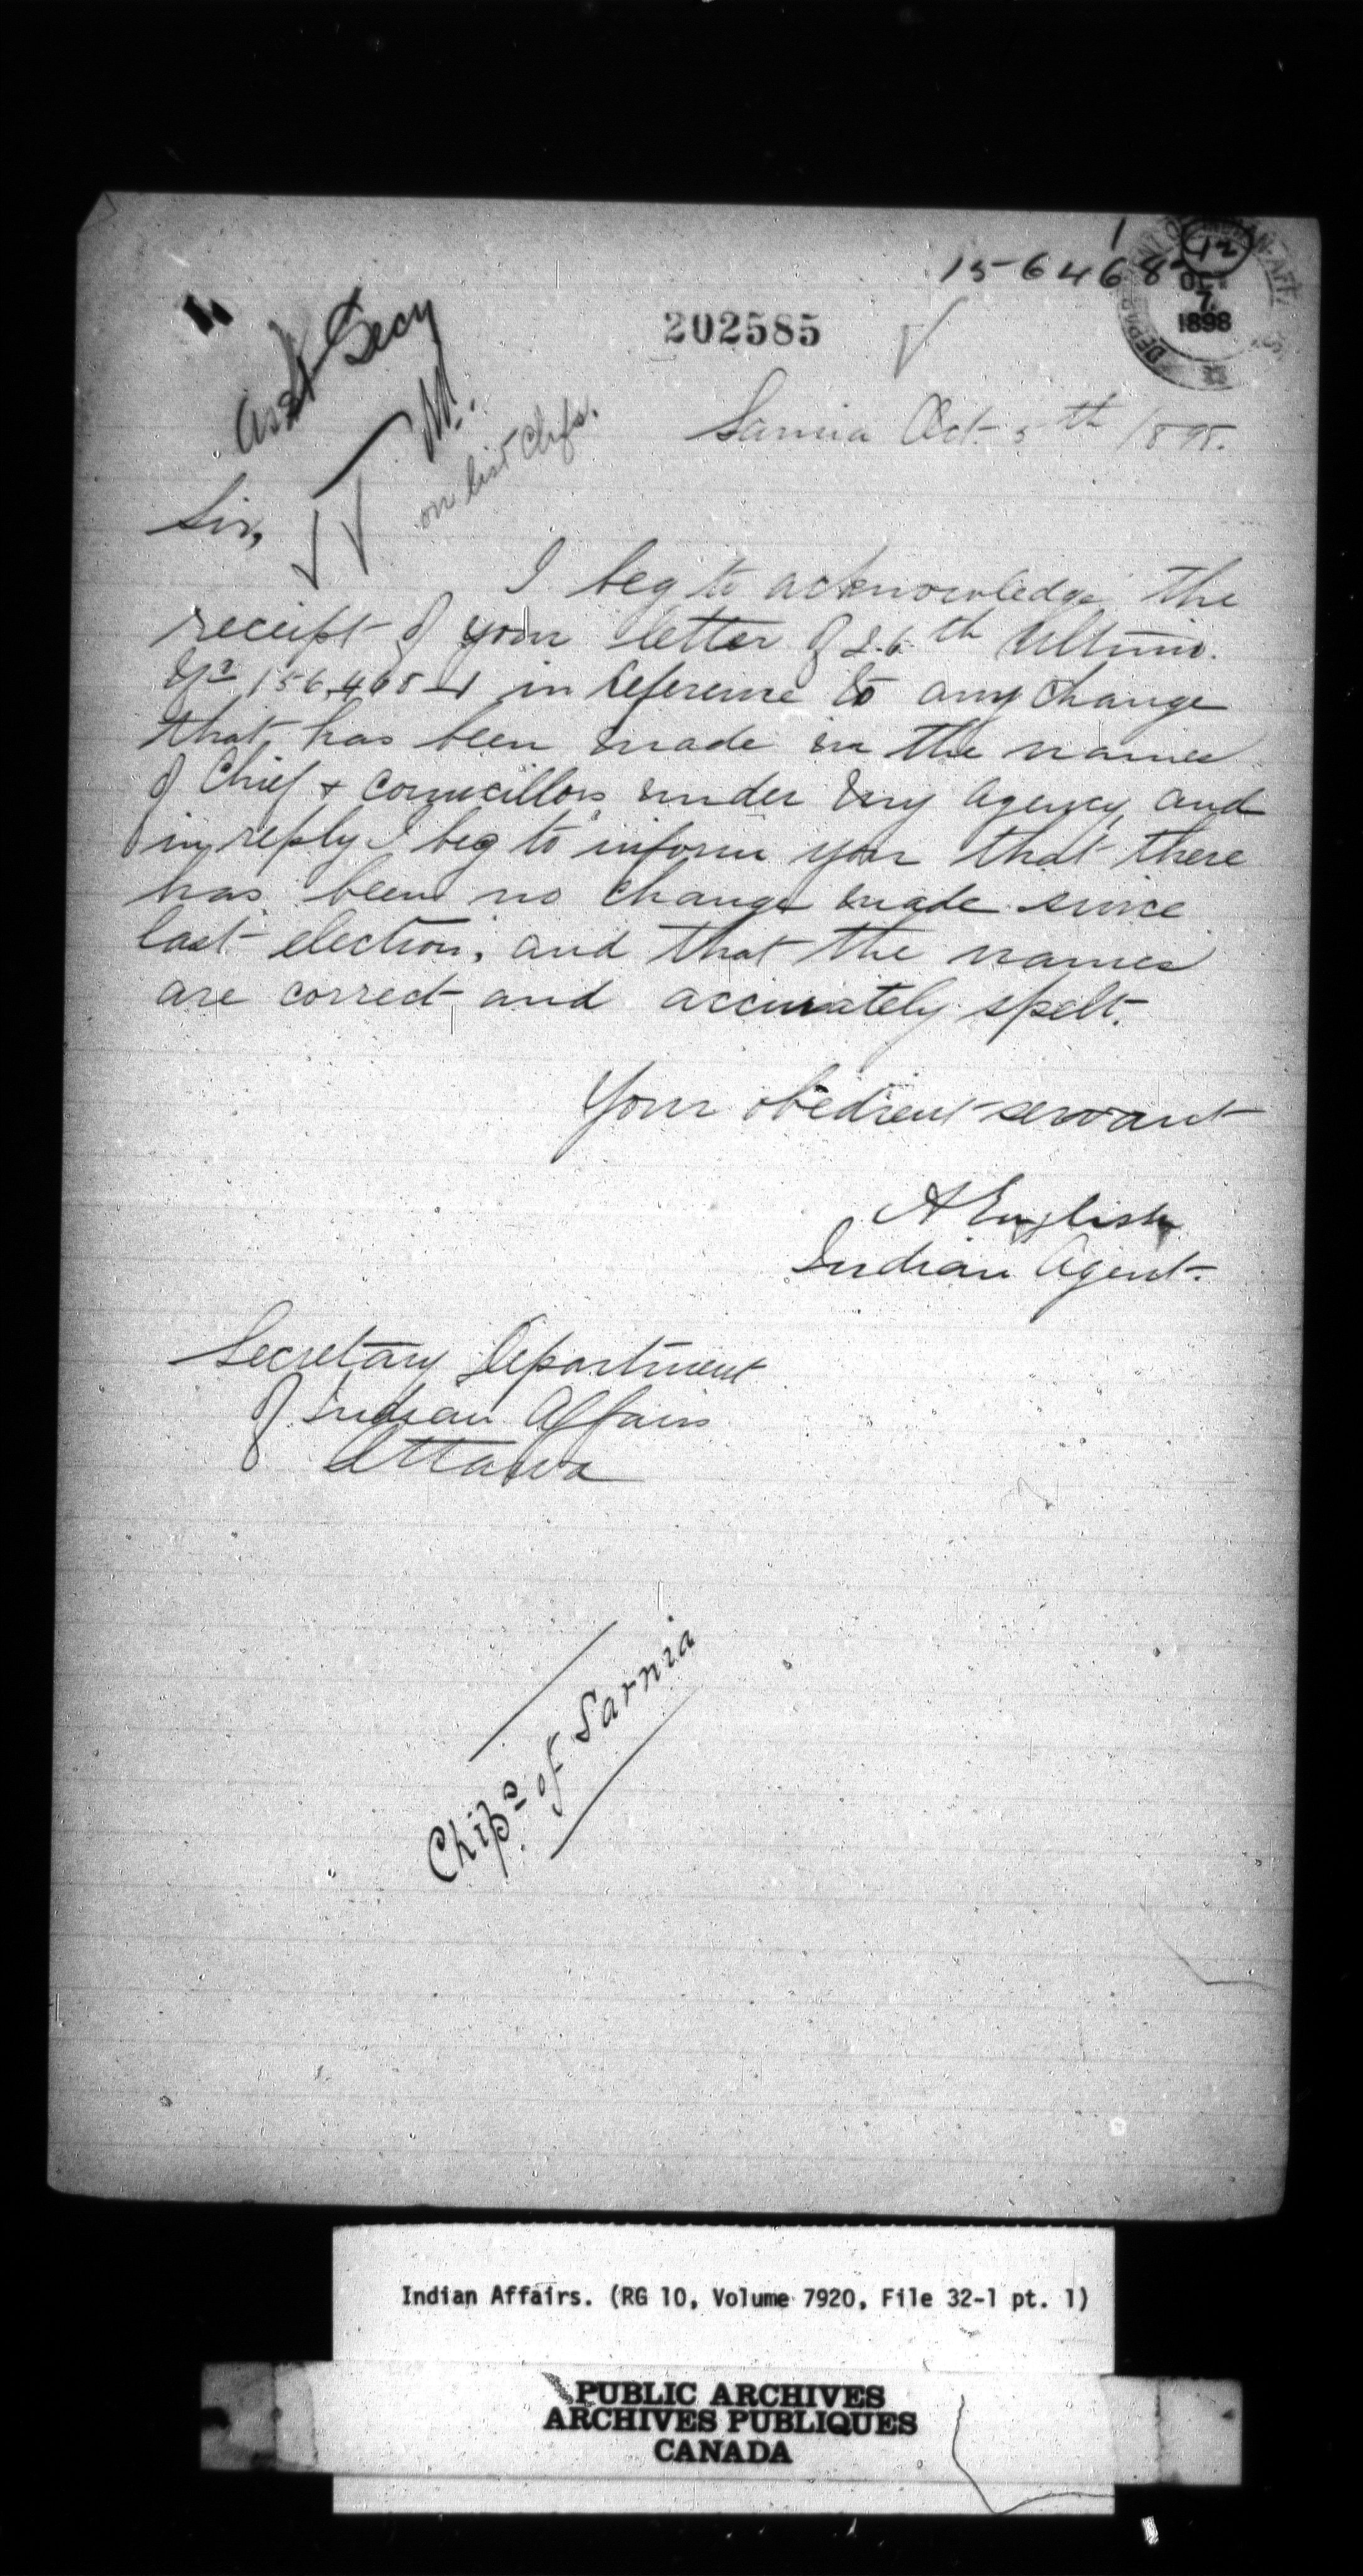 1
156468
12
DEPARTMENT OF INDIAN AFFAIRS
OCT
7.
1898
202585
Asst Secy
M.
on list Chfs.
Sarnia Oct 5th 1898.
Sir,
I beg to acknowledge the
receipt of your letter of 26th Ultimo.
No 156,468-1 in reference to any change
that has been made in the names
of Chief & Councillors under my agency, and
in reply I beg to inform you that there
has been no change made since
last election, and that the names
are correct and accurately spelt.
Your obedient servant
A English
Indian Agent.
Secretary Department
of Indian Affairs
Ottawa
Chips of Sarnia
Indian Affairs. (RG 10, Volume 7920, File 32-1 pt. 1)
PUBLIC ARCHIVES
ARCHIVES PUBLIQUES
CANADA